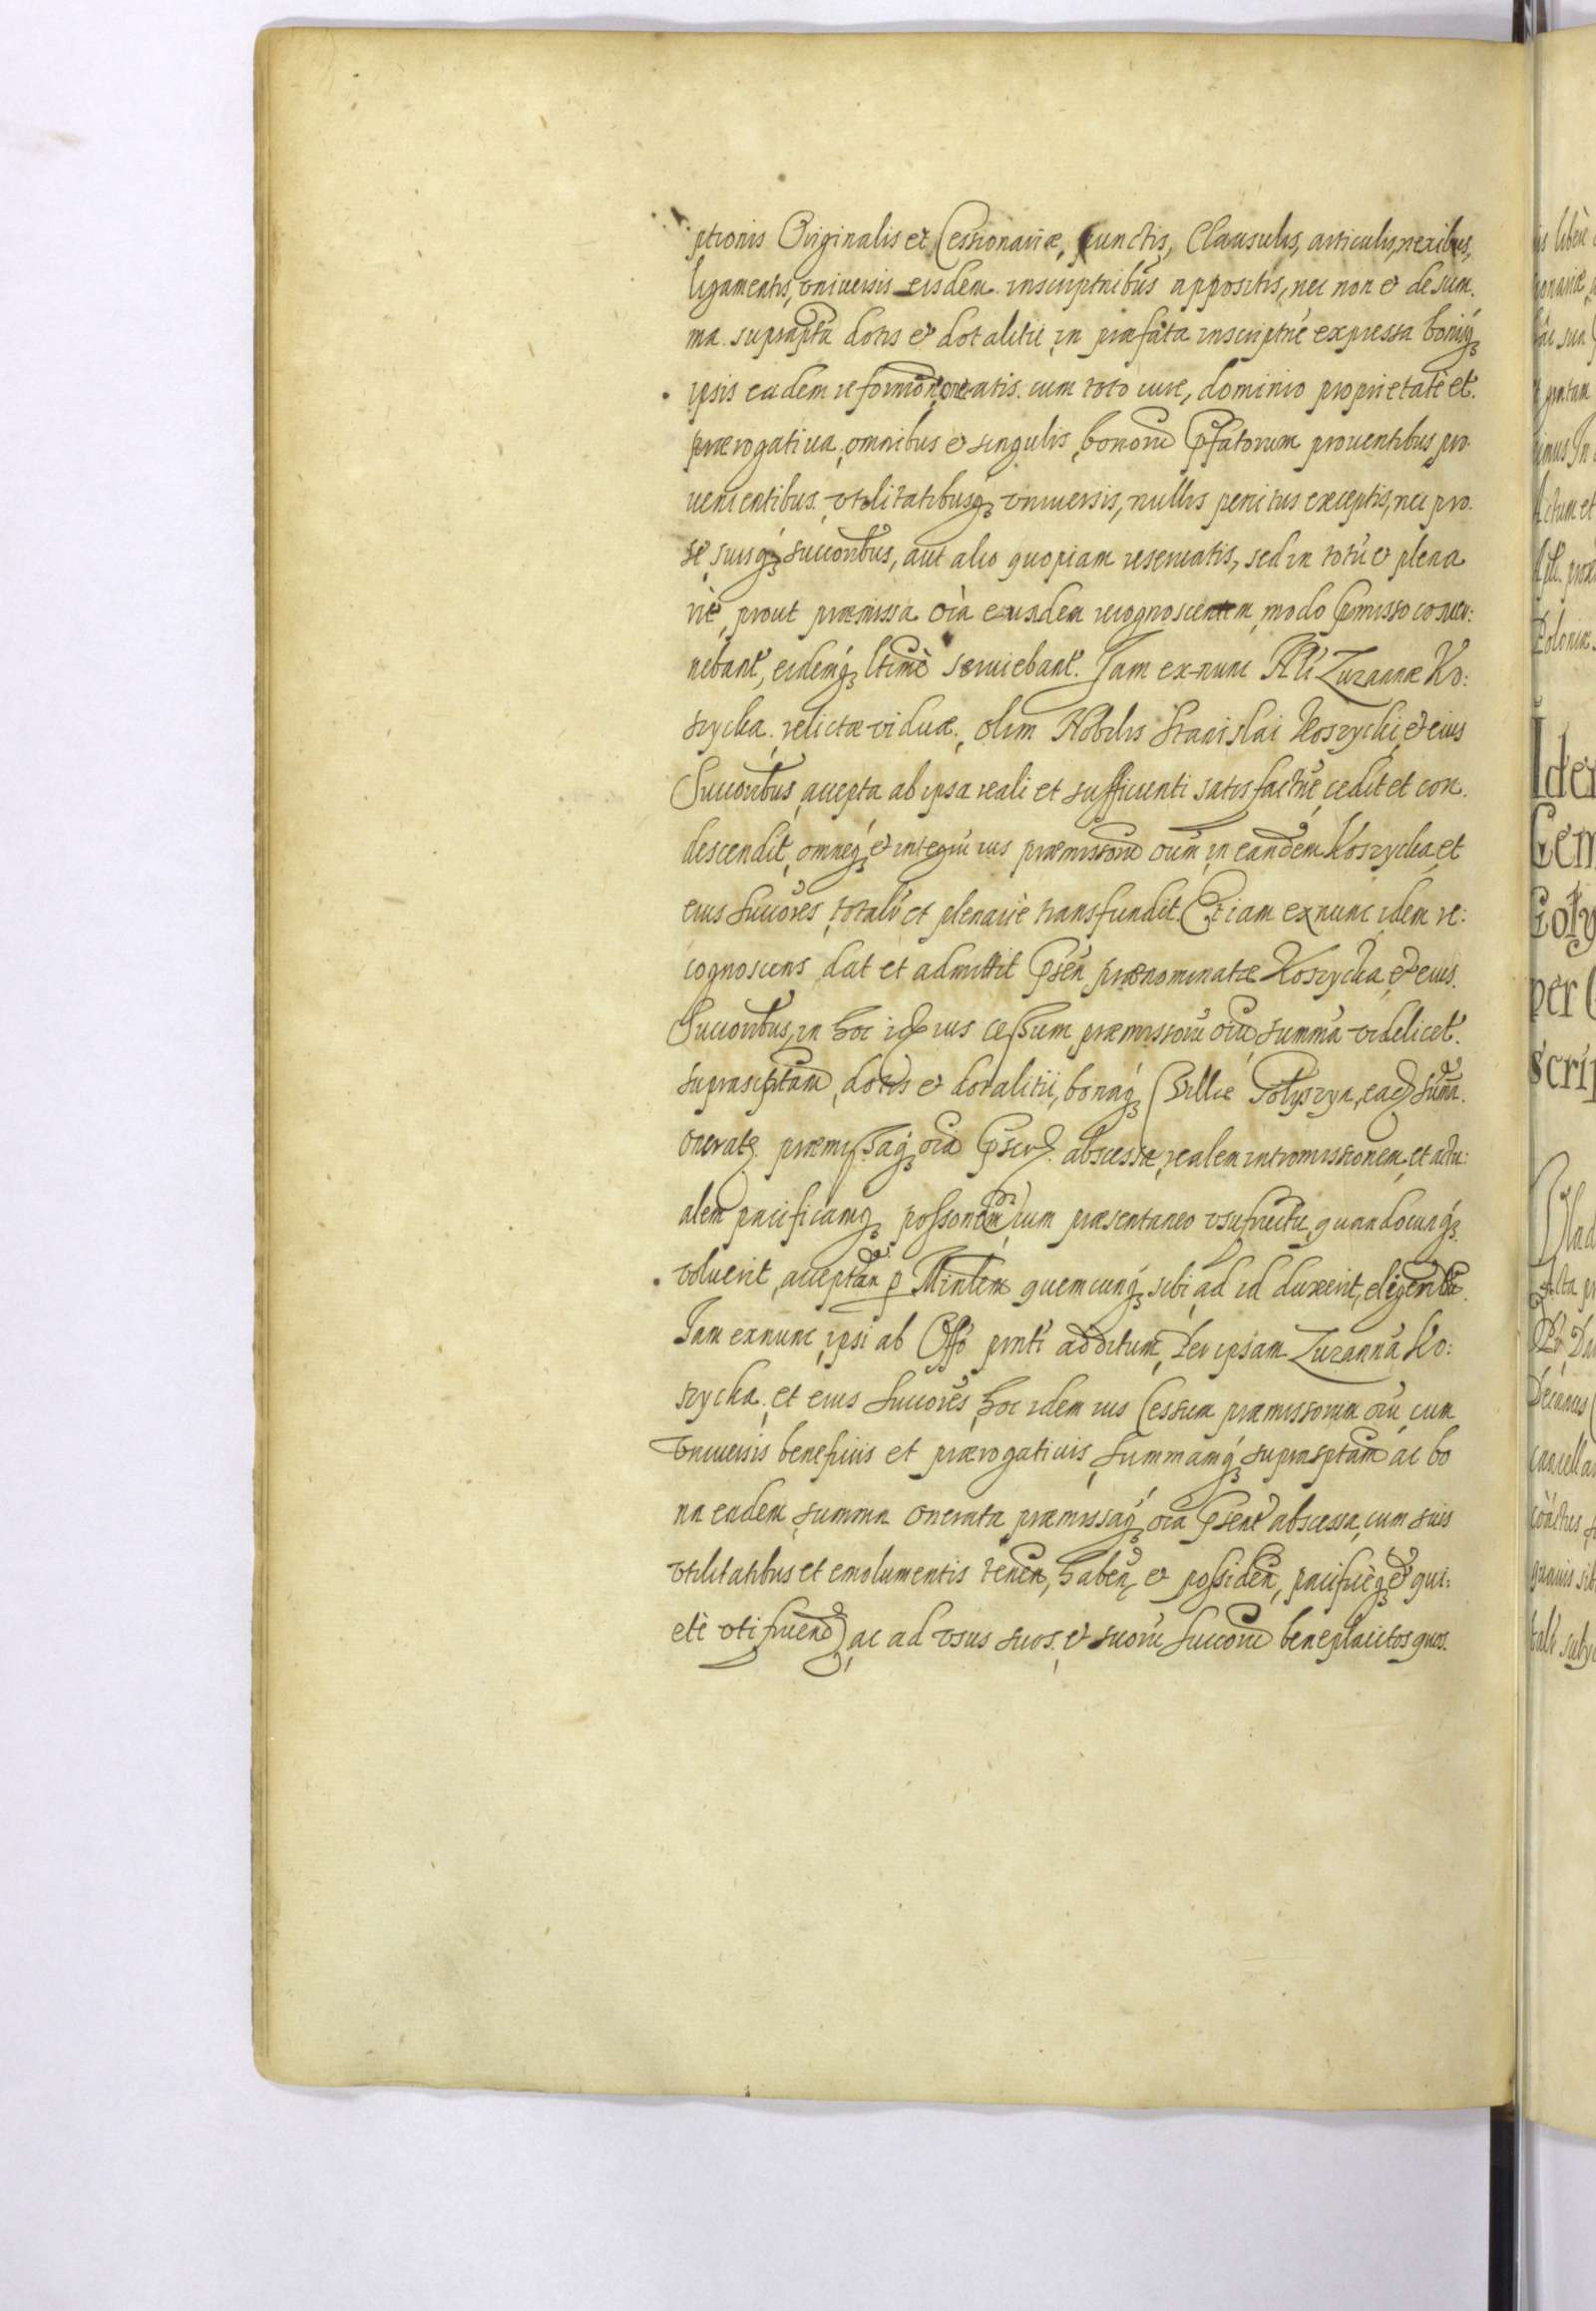 ptionis Originalis et Cessionariæ, punctis, Clausulis, articulis, nexibus,
ligamentis, vniuersis eisdem inscriptnibus appositis, nec non et de sum
ma suprapta dotis et dotalitii in præfata inscriptne expressa bonisq3
ipsis eadem reformõne oneratis. cum toto iure, dominio proprietate et
prærogatiua, omnibus et singulis, bonorũ Pfatorum prouentibus, pro
uenientibus vtilitatibusq3 vniuersis, nullis penitus exceptis, nec pro
se, suisq3 succoribus, aut alio quopiam reseruatis, sed in totũ et plena
riè, prout præmissa oĩa eundem recognoscentem, modo Pmisso concer:
nebant, eidemq3 ltimè seruiebant. Jam ex-nunc Zuzannæ Ko:
szycka, relictæ viduæ, olim Nobilis Stanislai Koszycki, et eius
Succoribus, accepta ab ipsa reali et sufficienti satisfactne, cedit et con
descendit, omneq3 et integrũ ius præmissorũ oium, in eandem Koszycka, et
eius Succores, totalr et plenariè transfundit. Et iam exnunc idem re:
cognoscens dat et admittit Psen prænominatæ Koszycka, et eius
Succoribus, in hoc ius cessum præmissorũ oiũ summã videlicet
suprascriptam, dotis et dotalitii, bonaq3 Villæ summa
præmissaq3 oĩa abscessa, realem intromissionem, et actu:
alem pacificamq3 possonem, cum præsentaneo vsufructu, quandocunq3
voluerit, acceptan p Mintlem quemcunq3 sibi ad id duxerit,
Jam exnunc, ipsi ab Offo pnti additum, Per ipsam Zuzannã Ko:
szycka, et eius Succores, hoc idem ius Cessum præmissorum oiũ, cum
vniuersis beneficiis et prærogatiuis, Summamq3 suprasptam ac bo
na eadem summa onerata præmissaq3 oĩa Psent abscessa, cum suis
vtilitatibus et emolumentis tenen, haben, et possiden, pacificèq3 et qui:
etè vti fruend, ac ad vsus suos, et suorũ Succorũ beneplacitos quos